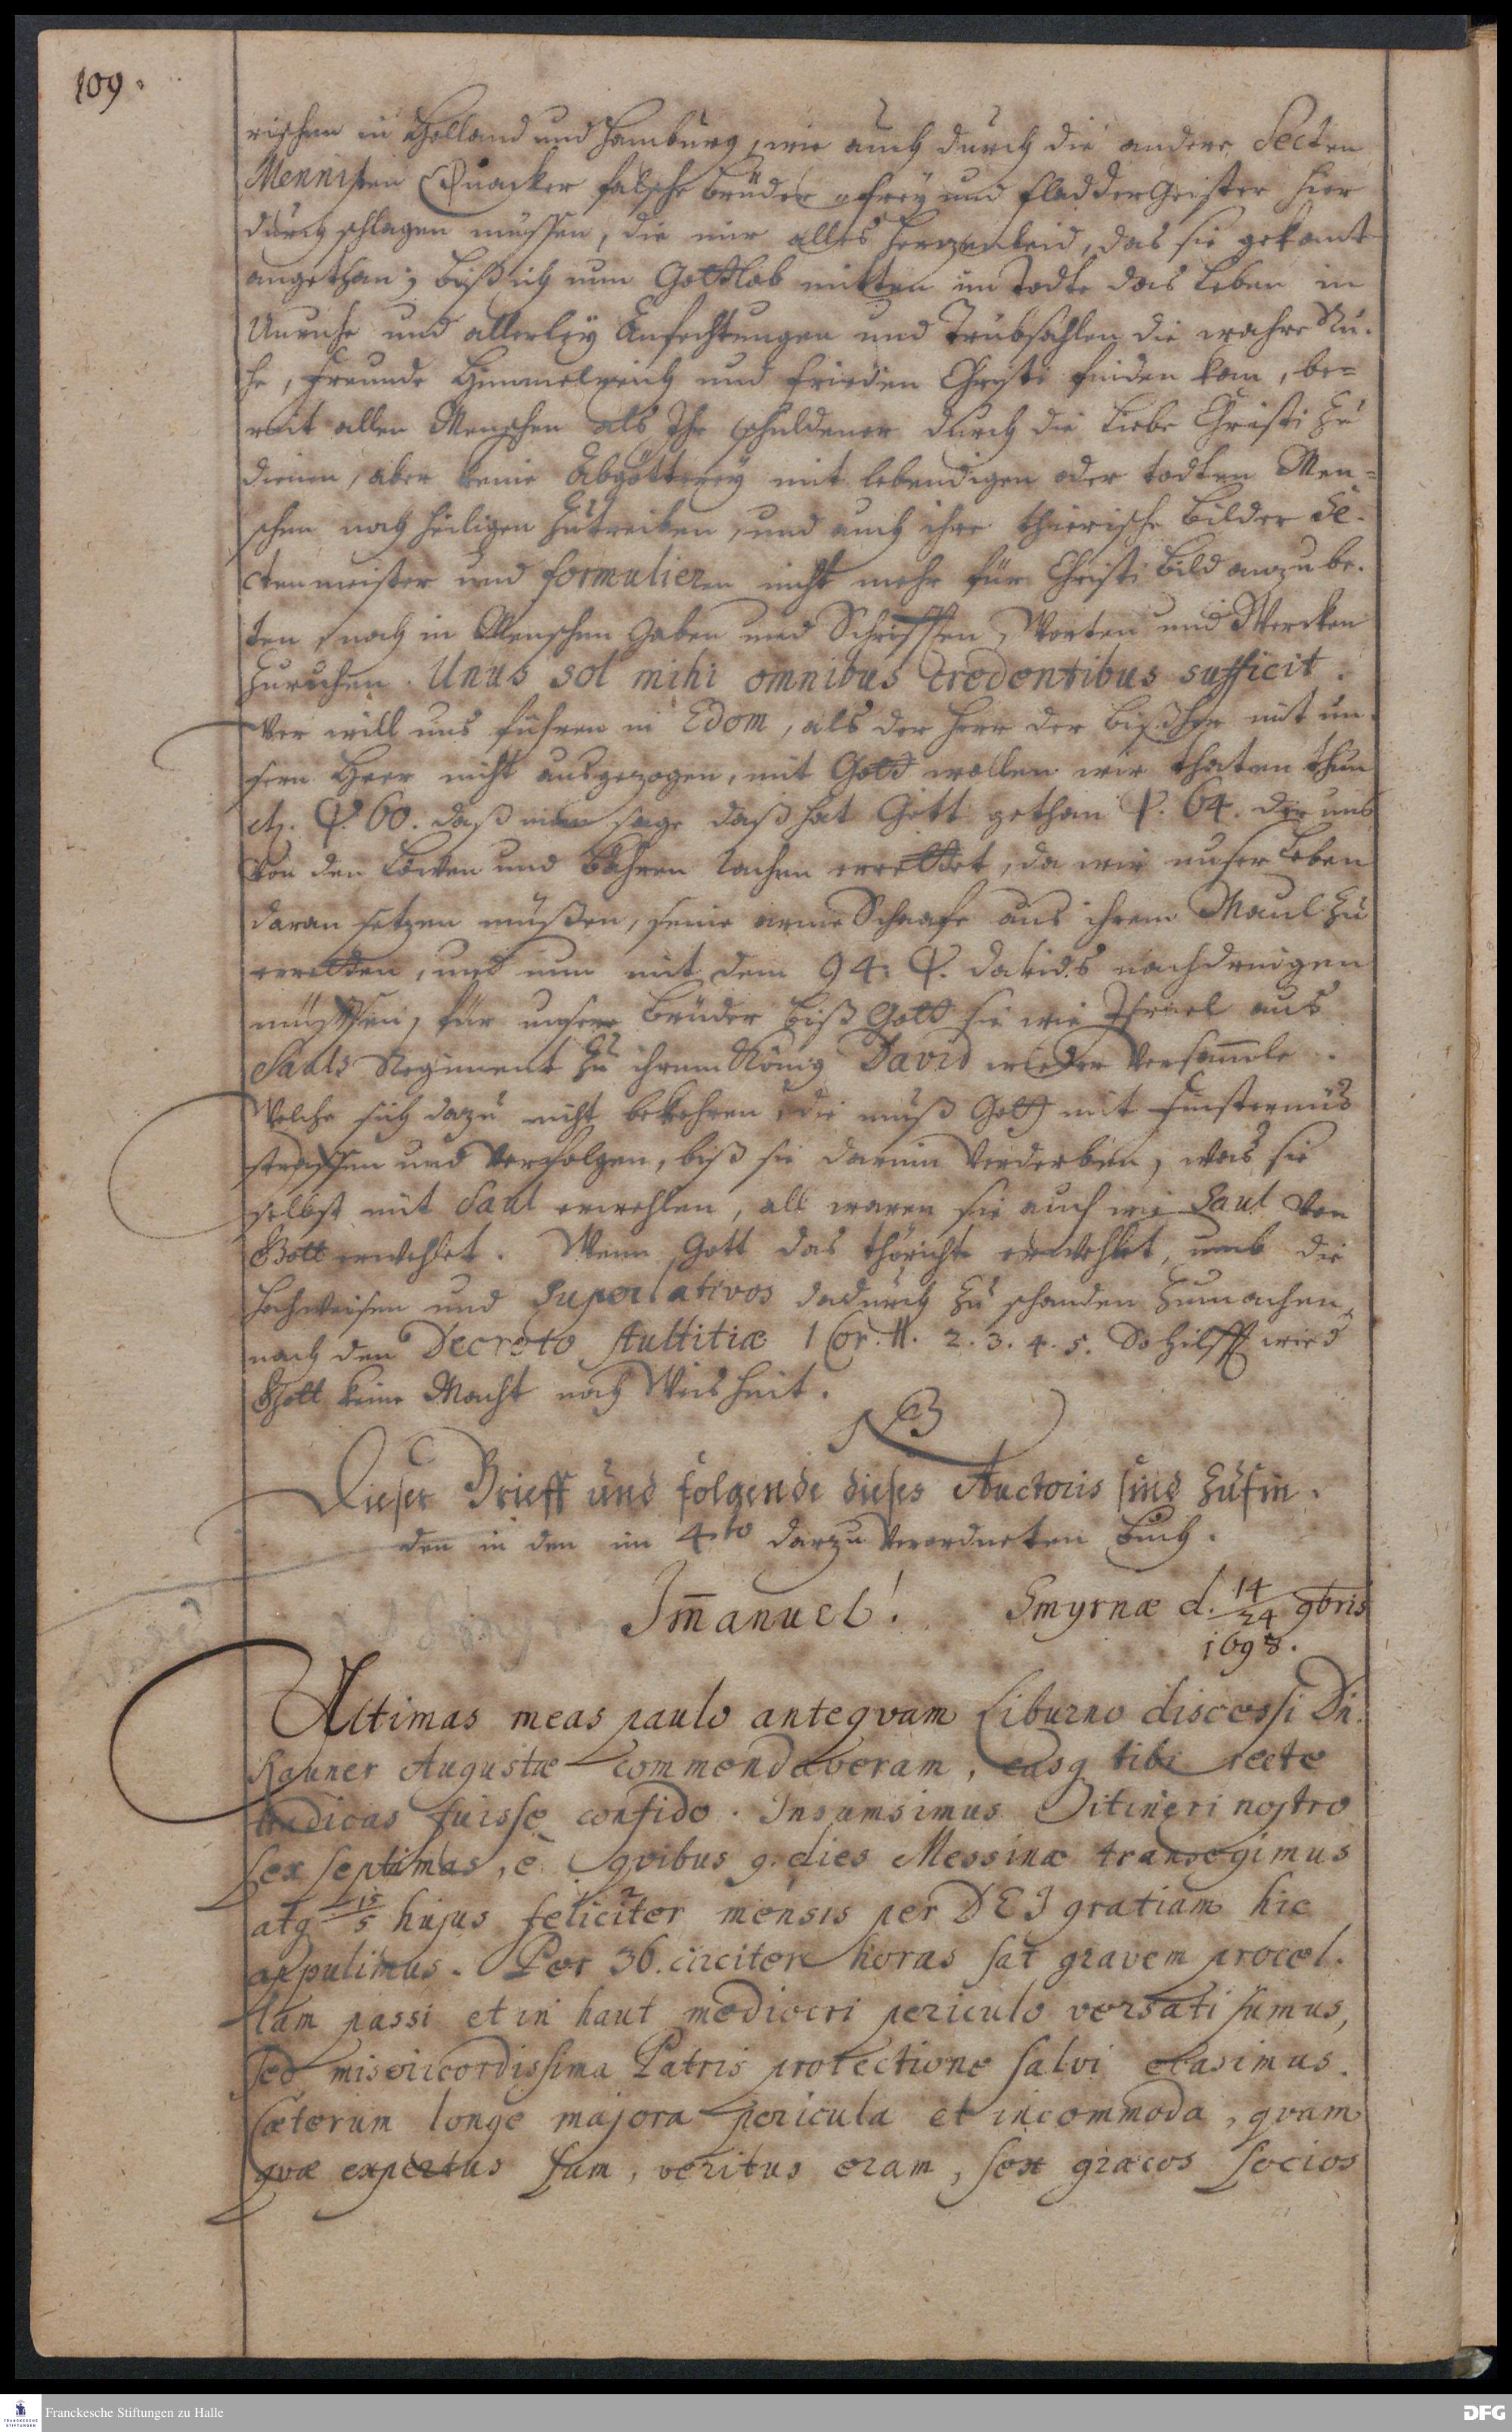 109.
rischen in Holland und Hamburg, wie auch durch die andere Secten
Mennisten Quacker falsche brüder frey und fladdergeister hier
durchschlagen müssen, die mir alles hertzenleid, das sie gekont
angethan; biß ich nun Gottlob mitten im Todte das leben in
Unruhe und allerley Anfechtungen und Trübsahlen die wahre Ru-
he, freunde Himmelreich und frieden Christi finden kan, be=
reit allen Menschen als Ihr schuldener durch die Liebe Christi zu
dienen, aber keine Abgötterey mit lebendigen oder todten Men=
schen noch heiligen zutreiben, und auch ihre thierische bilder Se-
ctenmeister und formulieren nicht mehr für Christi bild anzube-
ten, noch in Menschen gaben und Schrifften, Worten und Wercken
zuruhen. Unus sol mihi omnibus credentibus sufficit.
Wer will uns führen in Edom, als der Herr der bißher mit un-
sern Heer nicht ausgezogen, mit Gott wollen wir thaten thun
etc. Ps. 60. daß man sage daß hat Gott gethan Ps. 64. der uns
von den Löwen und Bähren rachen errettet, da wir unser Leben
daran setzen müßen, seine arme Schaafe aus ihrem Maul zu
erretten, und nun mit dem 94. Ps. Davids nachdringen
müssen, für unsere brüder biß Gott sie wie Israel aus
Sauls Regiment zu ihrem König David wieder versam̄ele.
Welche sich dazu nicht bekehren, die muß Gott mit finsternüs
straffen und verfolgen, biß sie darinn verderben, was sie
selbst mit Saul erwehlen, all waren sie auch wie Saul von
Gott erwehlet. Wenn Gott das thörichte erwehlet, umb die
hochweisen und Superlativos dadurch zu schanden zumachen,
nach den Decreto stultitiæ 1 Cor. 1. 2. 3. 4. 5. So hilfft wied
Gott keine Macht noch Weisheit.
NB
Dieser Brieff und folgende dieses Auctoris sind zufin-
den in den im 4to darzu verordneten buch.
Im̄anuel! Smyrnæ d. 14/24 9bris
1698.
Ultimas meas paulo anteqvam Liburno discessi Dn.
Rauner Augustæ commendaveram, easq tibi recte
redditas fuisse confido. Insumsimus itineri nostro
sex septimas, è qvibus 9. dies Messinæ transegimus
atq 15/5 hujus feliciter mensis per DEI gratiam hic
appulimus. Per 36. circiter horas sat gravem procel-
lam passi et in haut mediocri periculo versati sumus,
sed misericordissima Patris protectione salvi evasimus.
Cæterum longe majora pericula et incommoda, qvam
qvæ expertus sum, veritus eram, sex græcos socios
Franckesche Stiftungen zu Halle
DFG